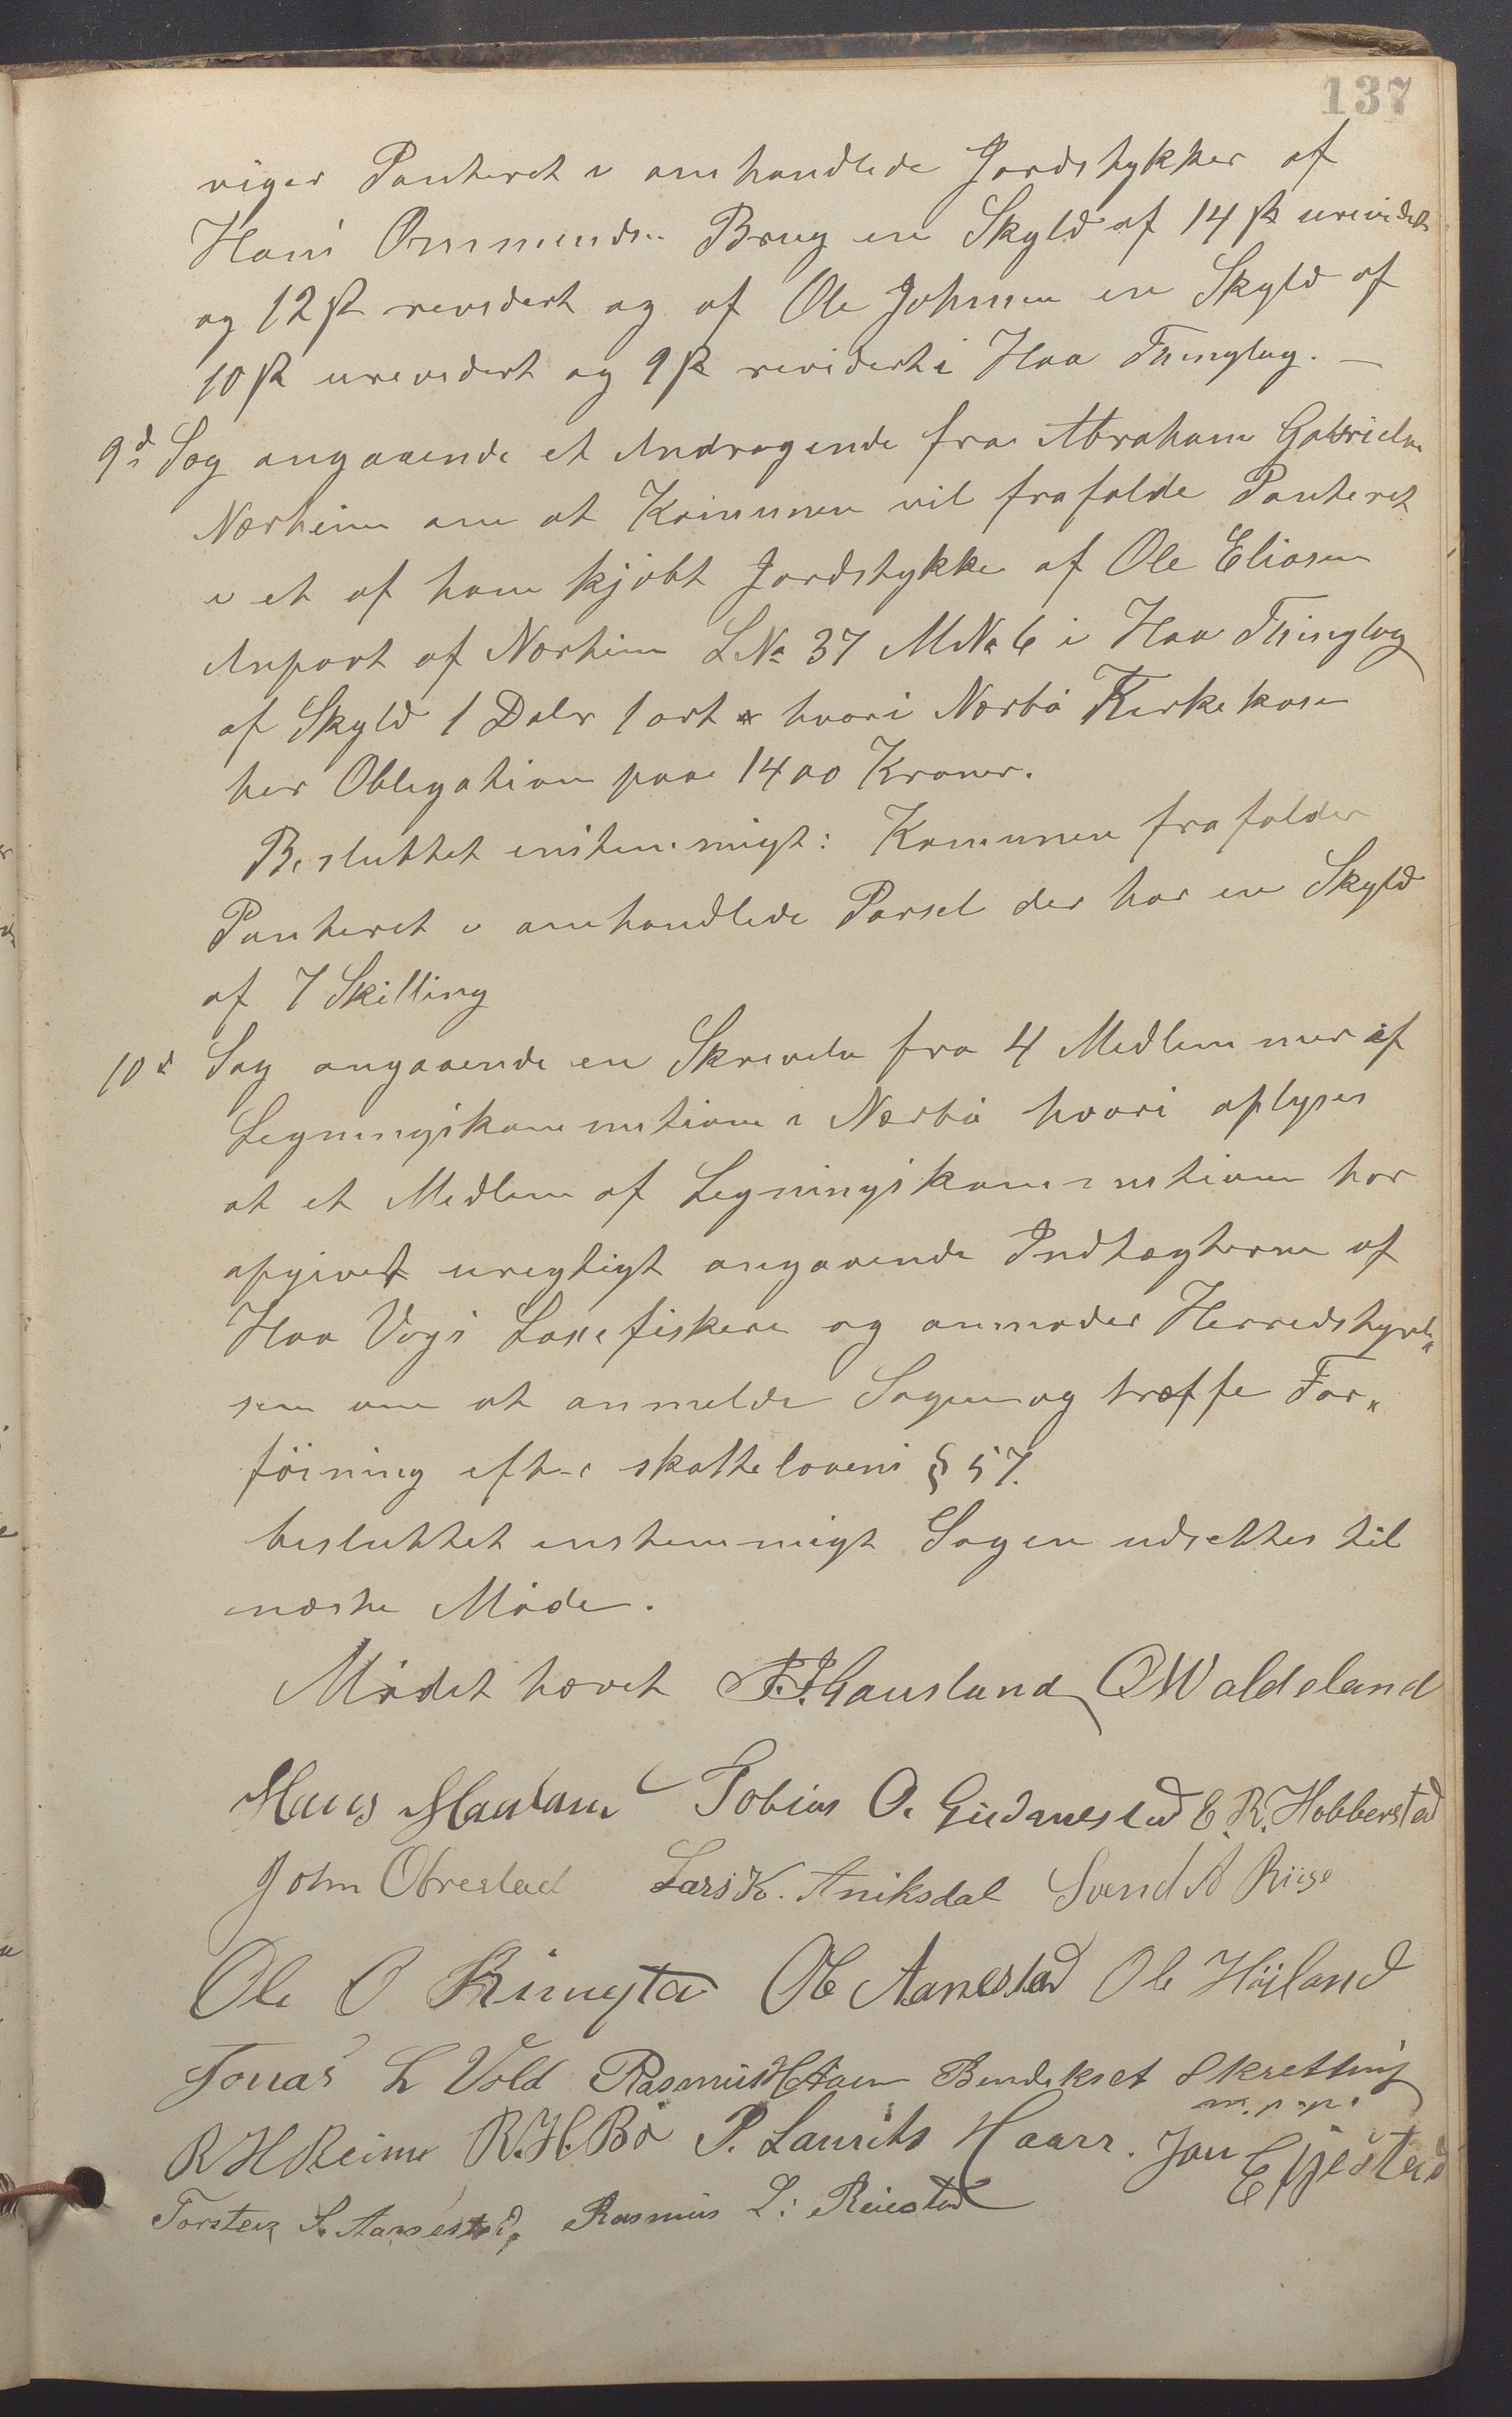 137
viger Panteret i omhandlede Jordstykker af
Hans Ommunds. Brug en Skyld af 14 ß urevidert
og 12 ß revidert og af Ole Johnsen en Skyld af
10 ß urevidert og 9 ß revidert i Haa Thinglag. —
9d Sag angaaende et Andragende fra Abraham Gabrielsen
Nærheim om at Komunen vil frafalde Panteret
i et af ham kjöbt Jordstykke af Ole Eliasen
Anpart af Nærheim LNo 37 MNo 6 i Haa Thinglag
af Skyld 1 Daler 1 ort hvori Nærbö Kirkekasse
har Obligation paa 1400 Kroner.
Besluttet enstemmigt: Komunen frafalder
Panteret i omhandlede Parsel der har en Skyld
af 7 Skilling
10d Sag angaaende en Skrivelse fra 4 Medlemmer af
Ligningskommitionen i Nærbö hvori oplyses
at et Medlem af Ligningskommitionen har
opgivet urigtigt angaaende Indtægterne af
Haa Vogs Laxefiskeri og anmoder Herredstyrel„
sen om at anmelde Sagen og træffe For„
föining efter skattelovens § 57.
besluttet enstemmigt Sagen udsettes til
næste Möde.
Mödet hævet T. J. Gausland O W aldeland
Hans Maaland Tobias O. Gudmestad E. R. Hobberstad
John Obrestad Lars K. Aniksdal Svend A Riise
Ole O Ringsta Ole Aanestad Ole Höiland
Jonas L Vold Rasmus H Haar Bendikset Skretting
m. p. p.
R H Reime R. H. Bö P. Laurits Haarr. Jon E Gjestad
Torsten S. Aanestad, Rasmus L: Reiestad